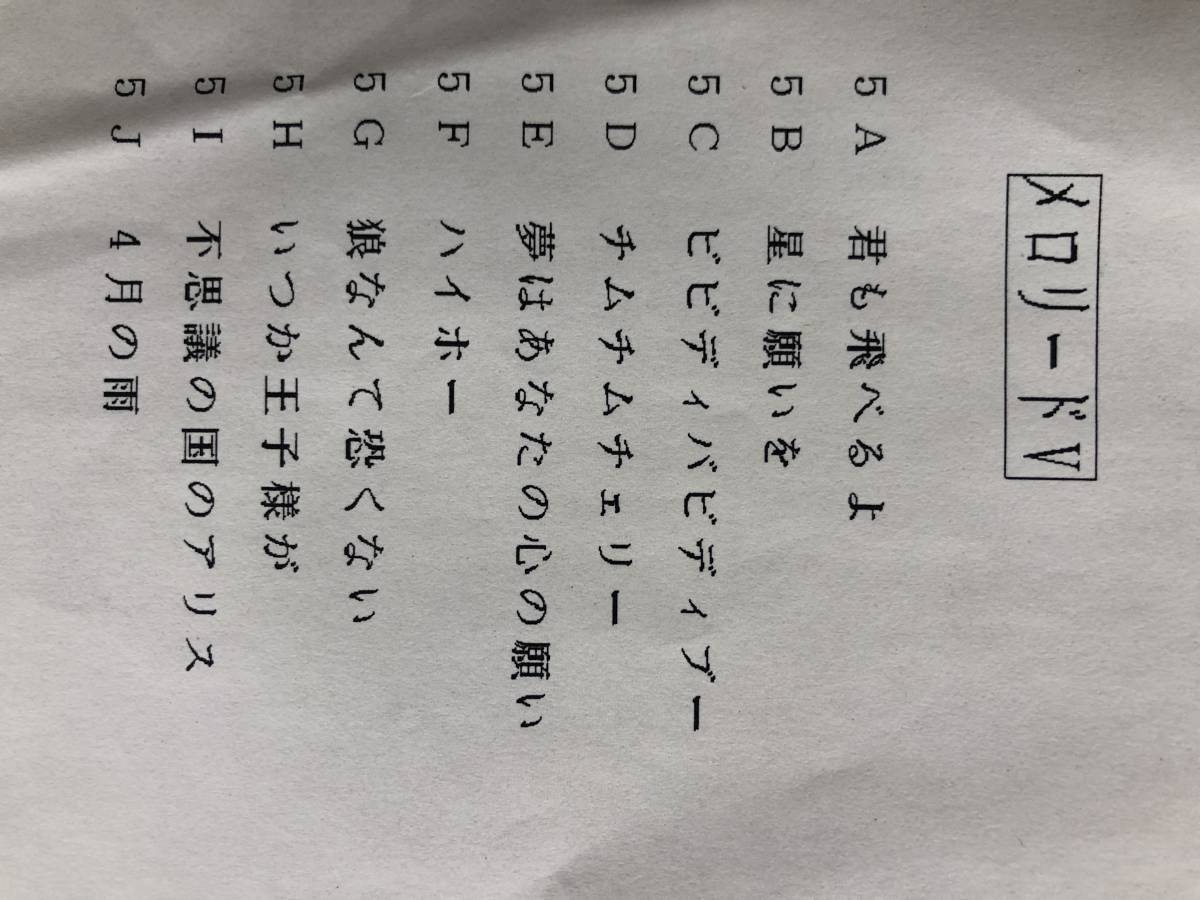 メロリードV
5A 君も飛べるよ
5B 星に願いを
5C ビビディバビディブー
5D チムチムチェリー
5E 夢はあなたの心の願い
5F ハイホー
5G 狼なんて恐くない
5H いつか王子様が
5I 不思議の国のアリス
5J 4月の雨